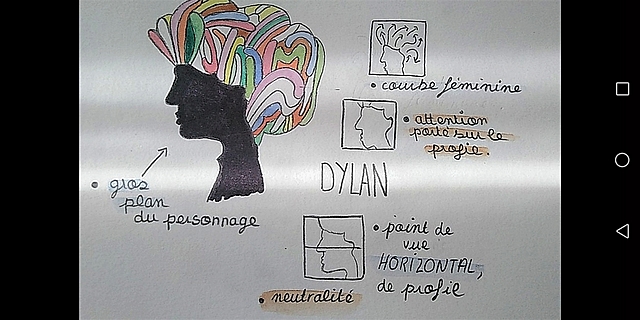 • courbe féminine
• attention
porté sur le
profie.
DYLAN
• gros
plan
du personnage
• point de
vue
HORIZONTAL,
de profil
• neutralité